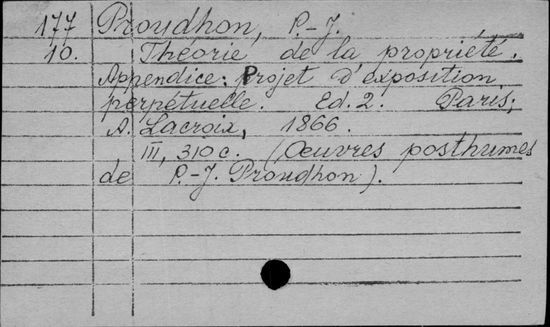 177 Proudhon, P.-J.
10. Théorie de la propriété.
Appendice: Projet d'exposition
perpétuelle. Ed. 2. Paris,
A. Lacroix, 1866.
III, 310 c. (Oeuvres posthumes
de P.-J. Proudhon).